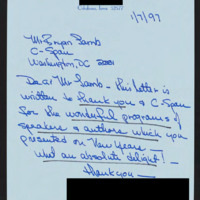 1/7/97
Mr Bryan Lamb
C-Span
Washington, DC 20001
Dear Mr Lamb - this letter is
written to thank you & C-Span
for the wonderful programs of
speakers & authors which you
presented on New Years —
What an absolute delight! —
Thank you —